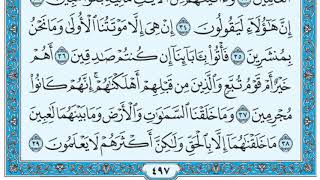 إِنَّ هَٰؤُلَاءِ لَيَقُولُونَ ٣٤ إِنْ هِيَ إِلَّا مَوْتَتُنَا الْأُولَىٰ وَمَا نَحْنُ
بِمُنشَرِينَ ٣٥ فَأْتُوا بِآبَائِنَا إِن كُنتُمْ صَادِقِينَ ٣٦ أَهُمْ
خَيْرٌ أَمْ قَوْمُ تُبَّعٍ وَالَّذِينَ مِن قَبْلِهِمْ أَهْلَكْنَاهُمْ إِنَّهُمْ كَانُوا
مُجْرِمِينَ ٣٧ وَمَا خَلَقْنَا السَّمَاوَاتِ وَالْأَرْضَ وَمَا بَيْنَهُمَا لَاعِبِينَ
٣٨ مَا خَلَقْنَاهُمَا إِلَّا بِالْحَقِّ وَلَٰكِنَّ أَكْثَرَهُمْ لَا يَعْلَمُونَ ٣٩
٤٩٧